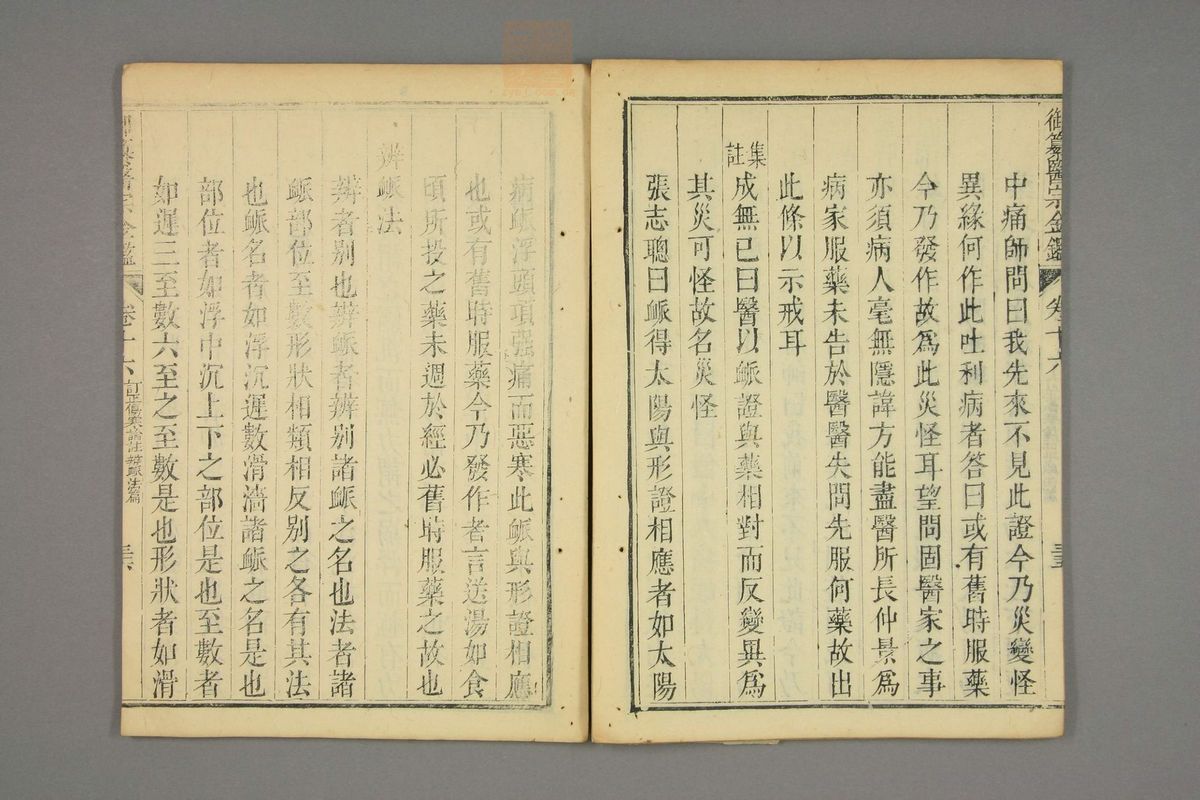 御纂醫宗金鑑 卷十六
中痛師問曰我先來不見此證今乃災變怪
異緣何作此吐利病者答曰或有舊時服藥
今乃發作故爲此災怪耳望問固醫家之事
亦須病人毫無隱諱方能盡醫所長仲景爲
病家服藥未告於醫醫失問先服何藥故出
此條以示戒耳
集註
成無已曰醫以脈證與藥相對而反變異爲
其災可怪故名災怪
張志聰曰脈得太陽與形證相應者如太陽
病脈浮頭項强痛而惡寒此脈與形證相應
也或有舊時服藥今乃發作者言送湯如食
頃所投之藥未週於經必舊時服藥之故也
辨脈法
辨者別也辨脈者辨別諸脈之名也法者諸
脈部位至數形狀相類相反別之各有其法
也脈名者如浮沉遲數滑濇諸脈之名是也
部位者如浮中沉上下之部位是也至數者
如遲三至數六至之至數是也形狀者如滑
卷十六 訂正傷寒論註 辨脈法篇